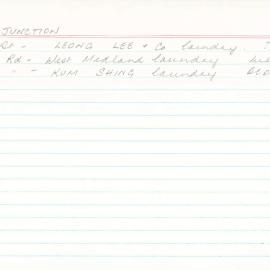 JUNCTION
St - LEONG LEE & Co laundry.
Rd - West Midland laundry
" - KUM SHING laundry